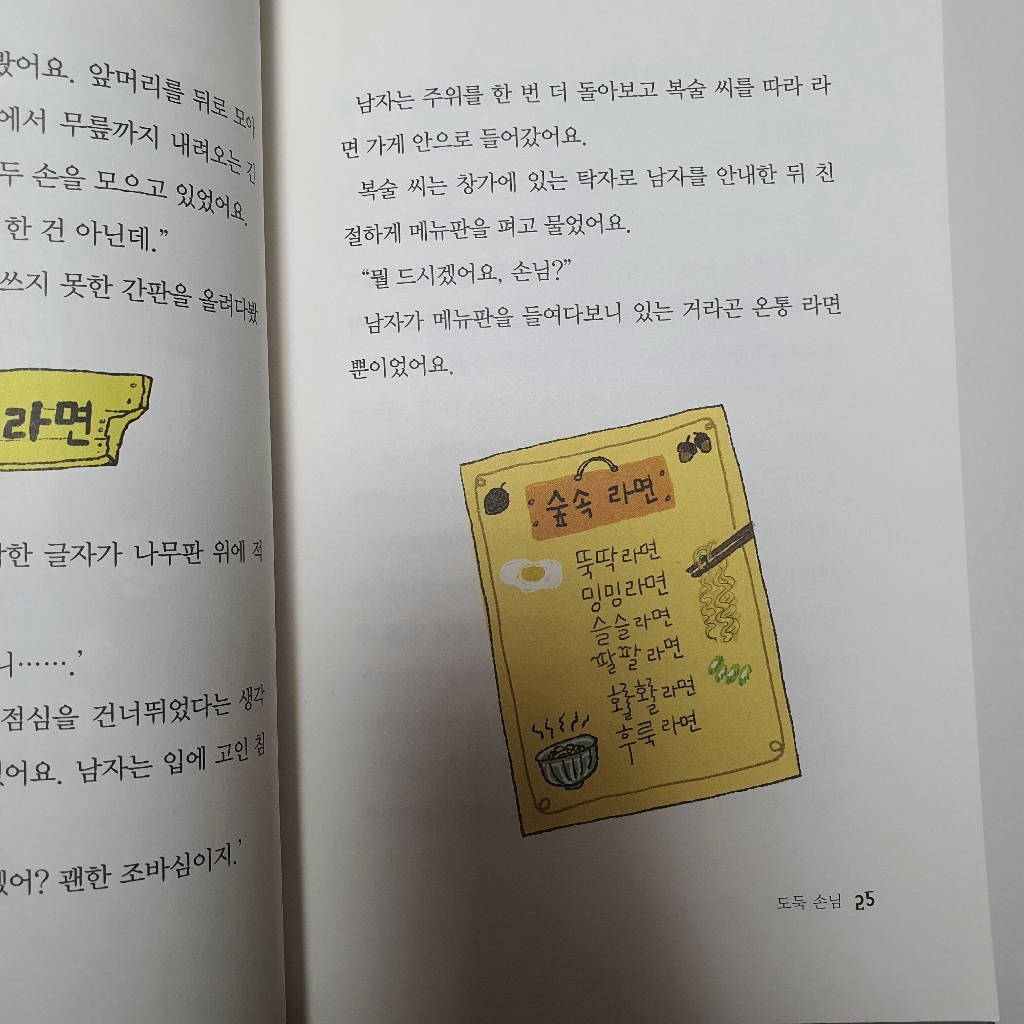 봤어요. 앞머리를 뒤로 모아
에서 무릎까지 내려오는 긴
두 손을 모으고 있었어요.
한 건 아닌데.”
쓰지 못한 간판을 올려다봤
라면
한 글자가 나무판 위에 적
니……’
점심을 건너뛰었다는 생각
었어요. 남자는 입에 고인 침
겠어? 괜한 조바심이지.’
남자는 주위를 한 번 더 돌아보고 복술 씨를 따라 라
면 가게 안으로 들어갔어요.
복술 씨는 창가에 있는 탁자로 남자를 안내한 뒤 친
절하게 메뉴판을 펴고 물었어요.
“뭘 드시겠어요, 손님?”
남자가 메뉴판을 들여다보니 있는 거라곤 온통 라면
뿐이었어요.
숲속 라면
뚝딱라면
밍밍라면
슬슬라면
팔팔라면
홀홀라면
후룩라면
도둑 손님 25